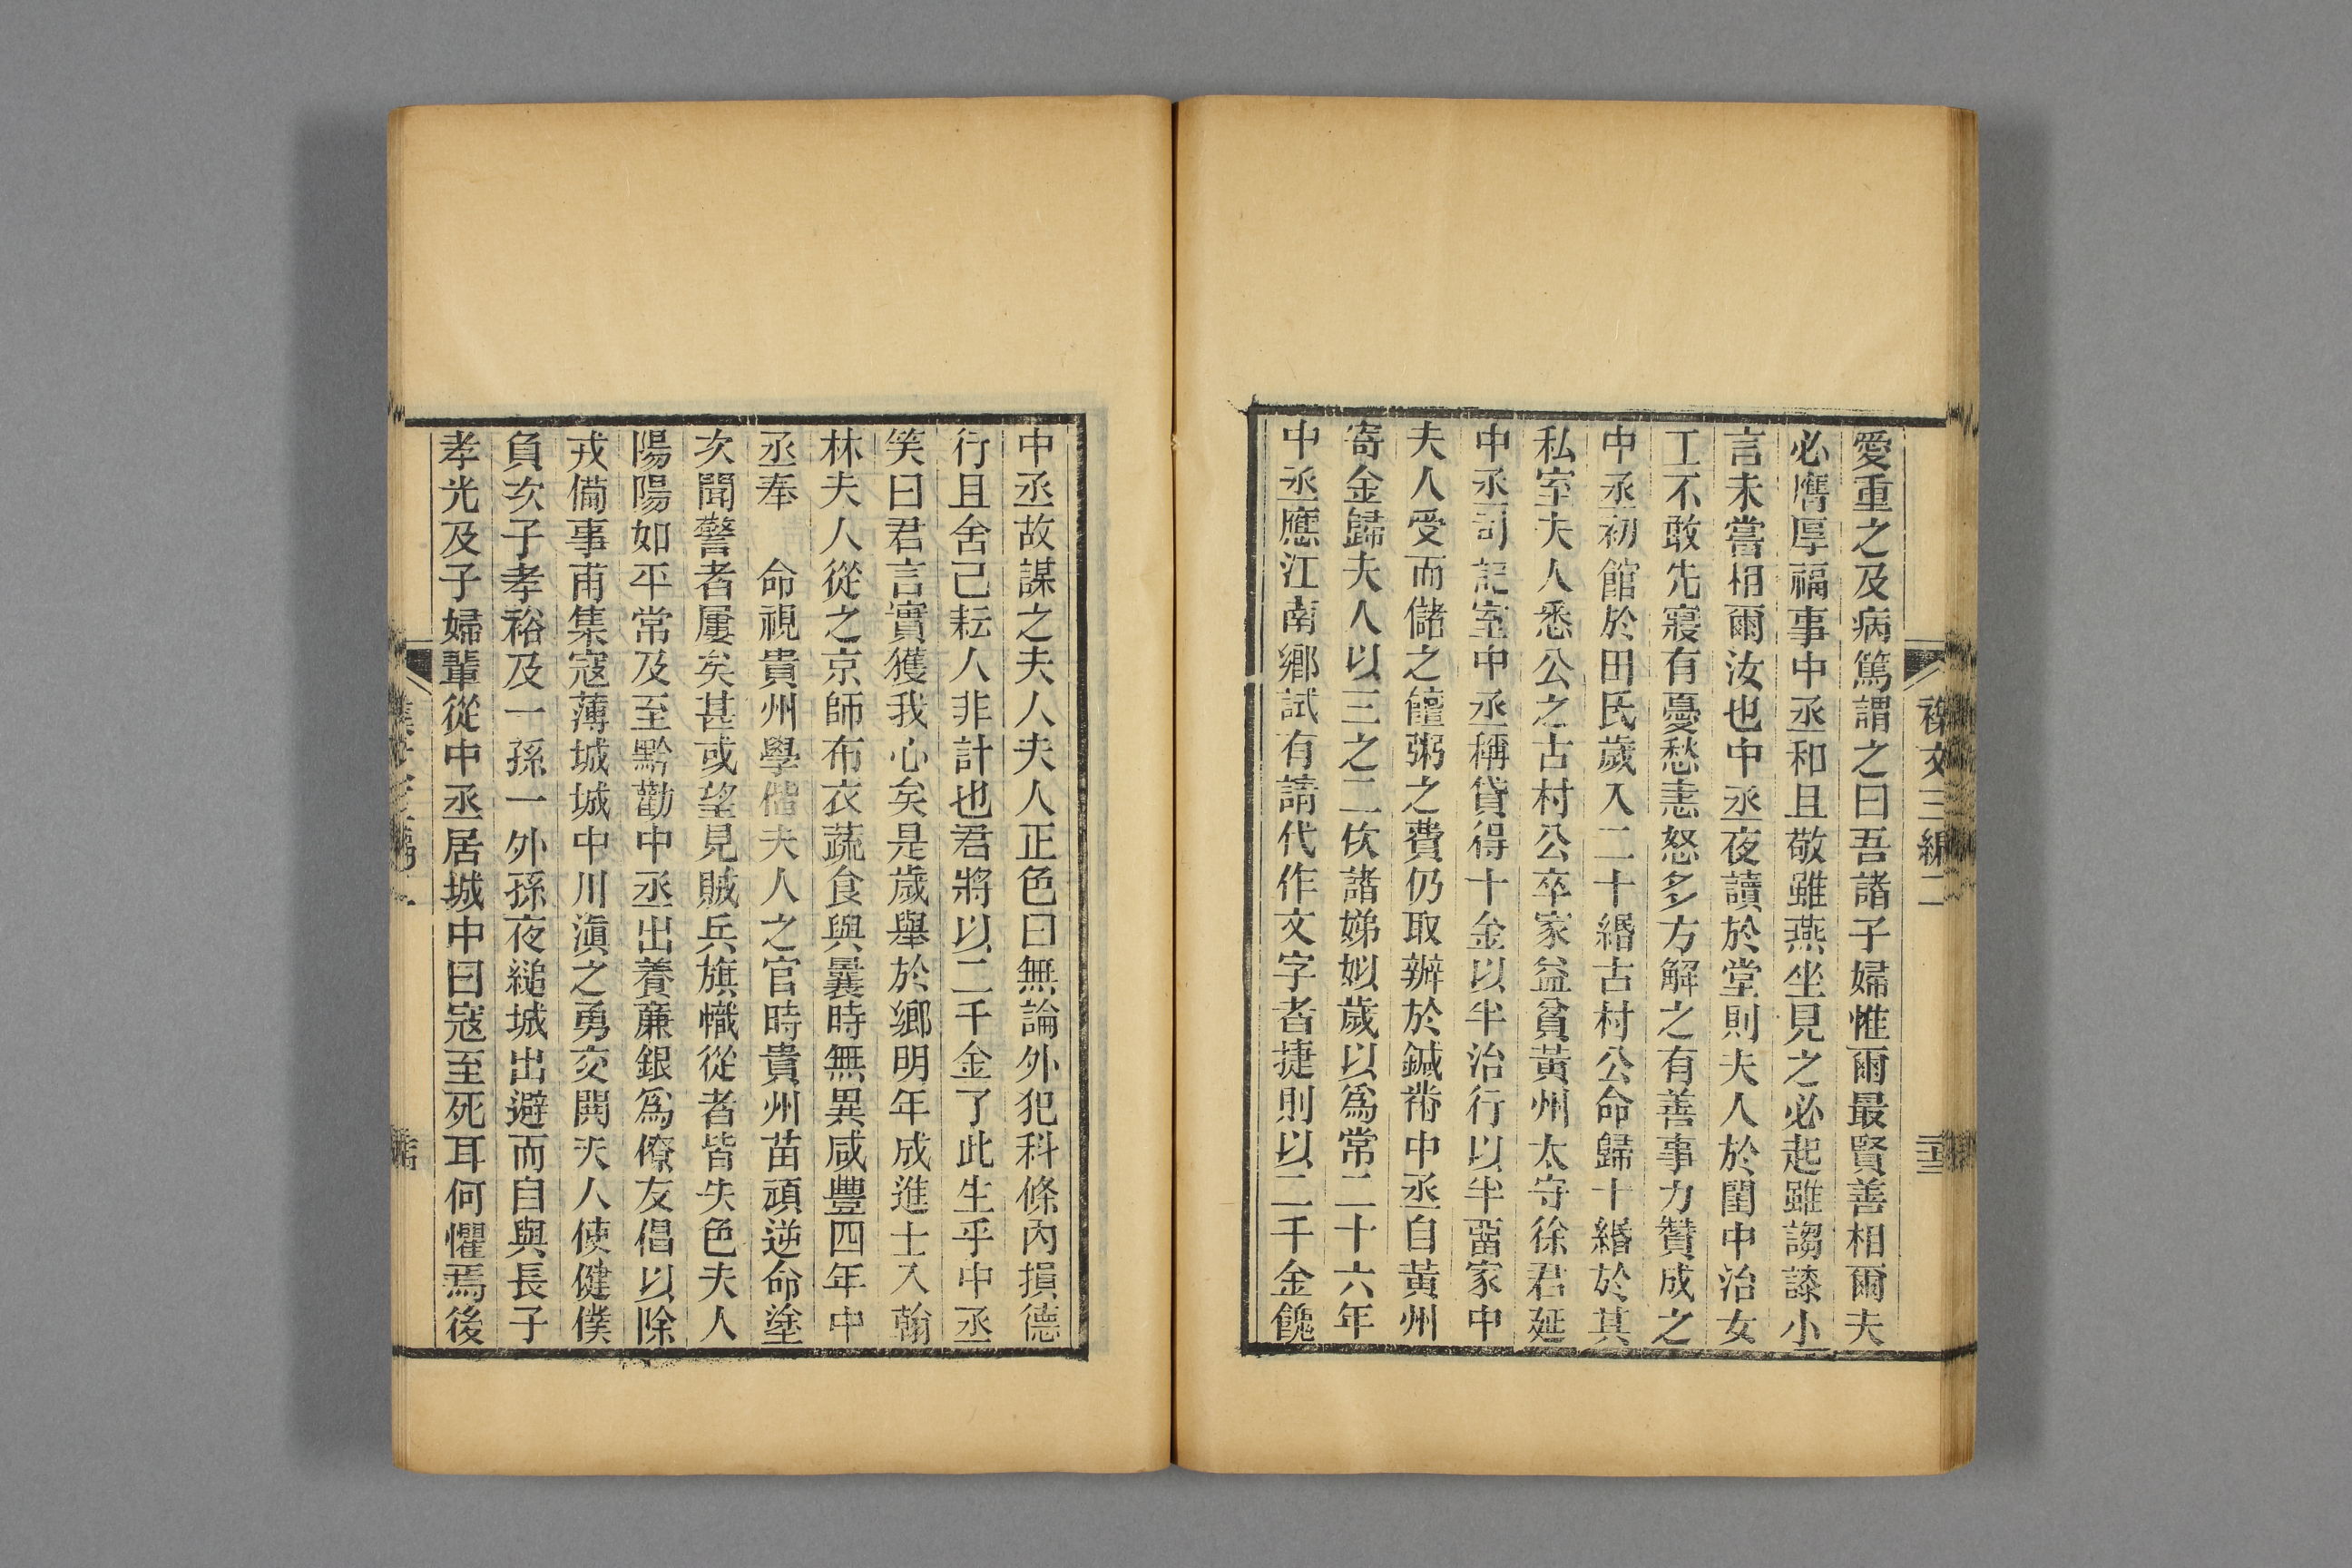 愛重之及病篤謂之曰吾諸子婦惟爾最賢善相爾夫
必膺厚福事中丞和且敬雖燕坐見之必起雖謅諑小
言未嘗相爾汝也中丞夜讀於堂則夫人於閨中治女
工不敢先寢有憂愁恚怒多方解之有善事力贊成之
中丞初館於田氏歲入二十緡古村公命歸十緡於其
私室夫人悉公之古村公卒家益貧黃州太守徐君延
中丞司記室中丞稱貸得十金以半治行以半畱家中
夫人受而儲之饘粥之費仍取辦於鍼黹中丞自黃州
寄金歸夫人以三之二佽諸娣姒歲以爲常二十六年
中丞應江南鄉試有請代作文字者捷則以二千金餽
襍文三編二
二十三
中丞故謀之夫人夫人正色曰無論外犯科條內損德
行且舍己耘人非計也君將以二千金了此生乎中丞
笑曰君言實獲我心矣是歲舉於鄉明年成進士入翰
林夫人從之京師布衣蔬食與曩時無異咸豐四年中
丞奉　命視貴州學偕夫人之官時貴州苗頑逆命塗
次聞警者屢矣甚或望見賊兵旗幟從者皆失色夫人
陽陽如平常及至黔勸中丞出養廉銀爲僚友倡以除
戎備事甫集寇薄城城中川滇之勇交鬨夫人使健僕
負次子孝裕及一孫一外孫夜縋城出避而自與長子
孝光及子婦輩從中丞居城中曰寇至死耳何懼焉後